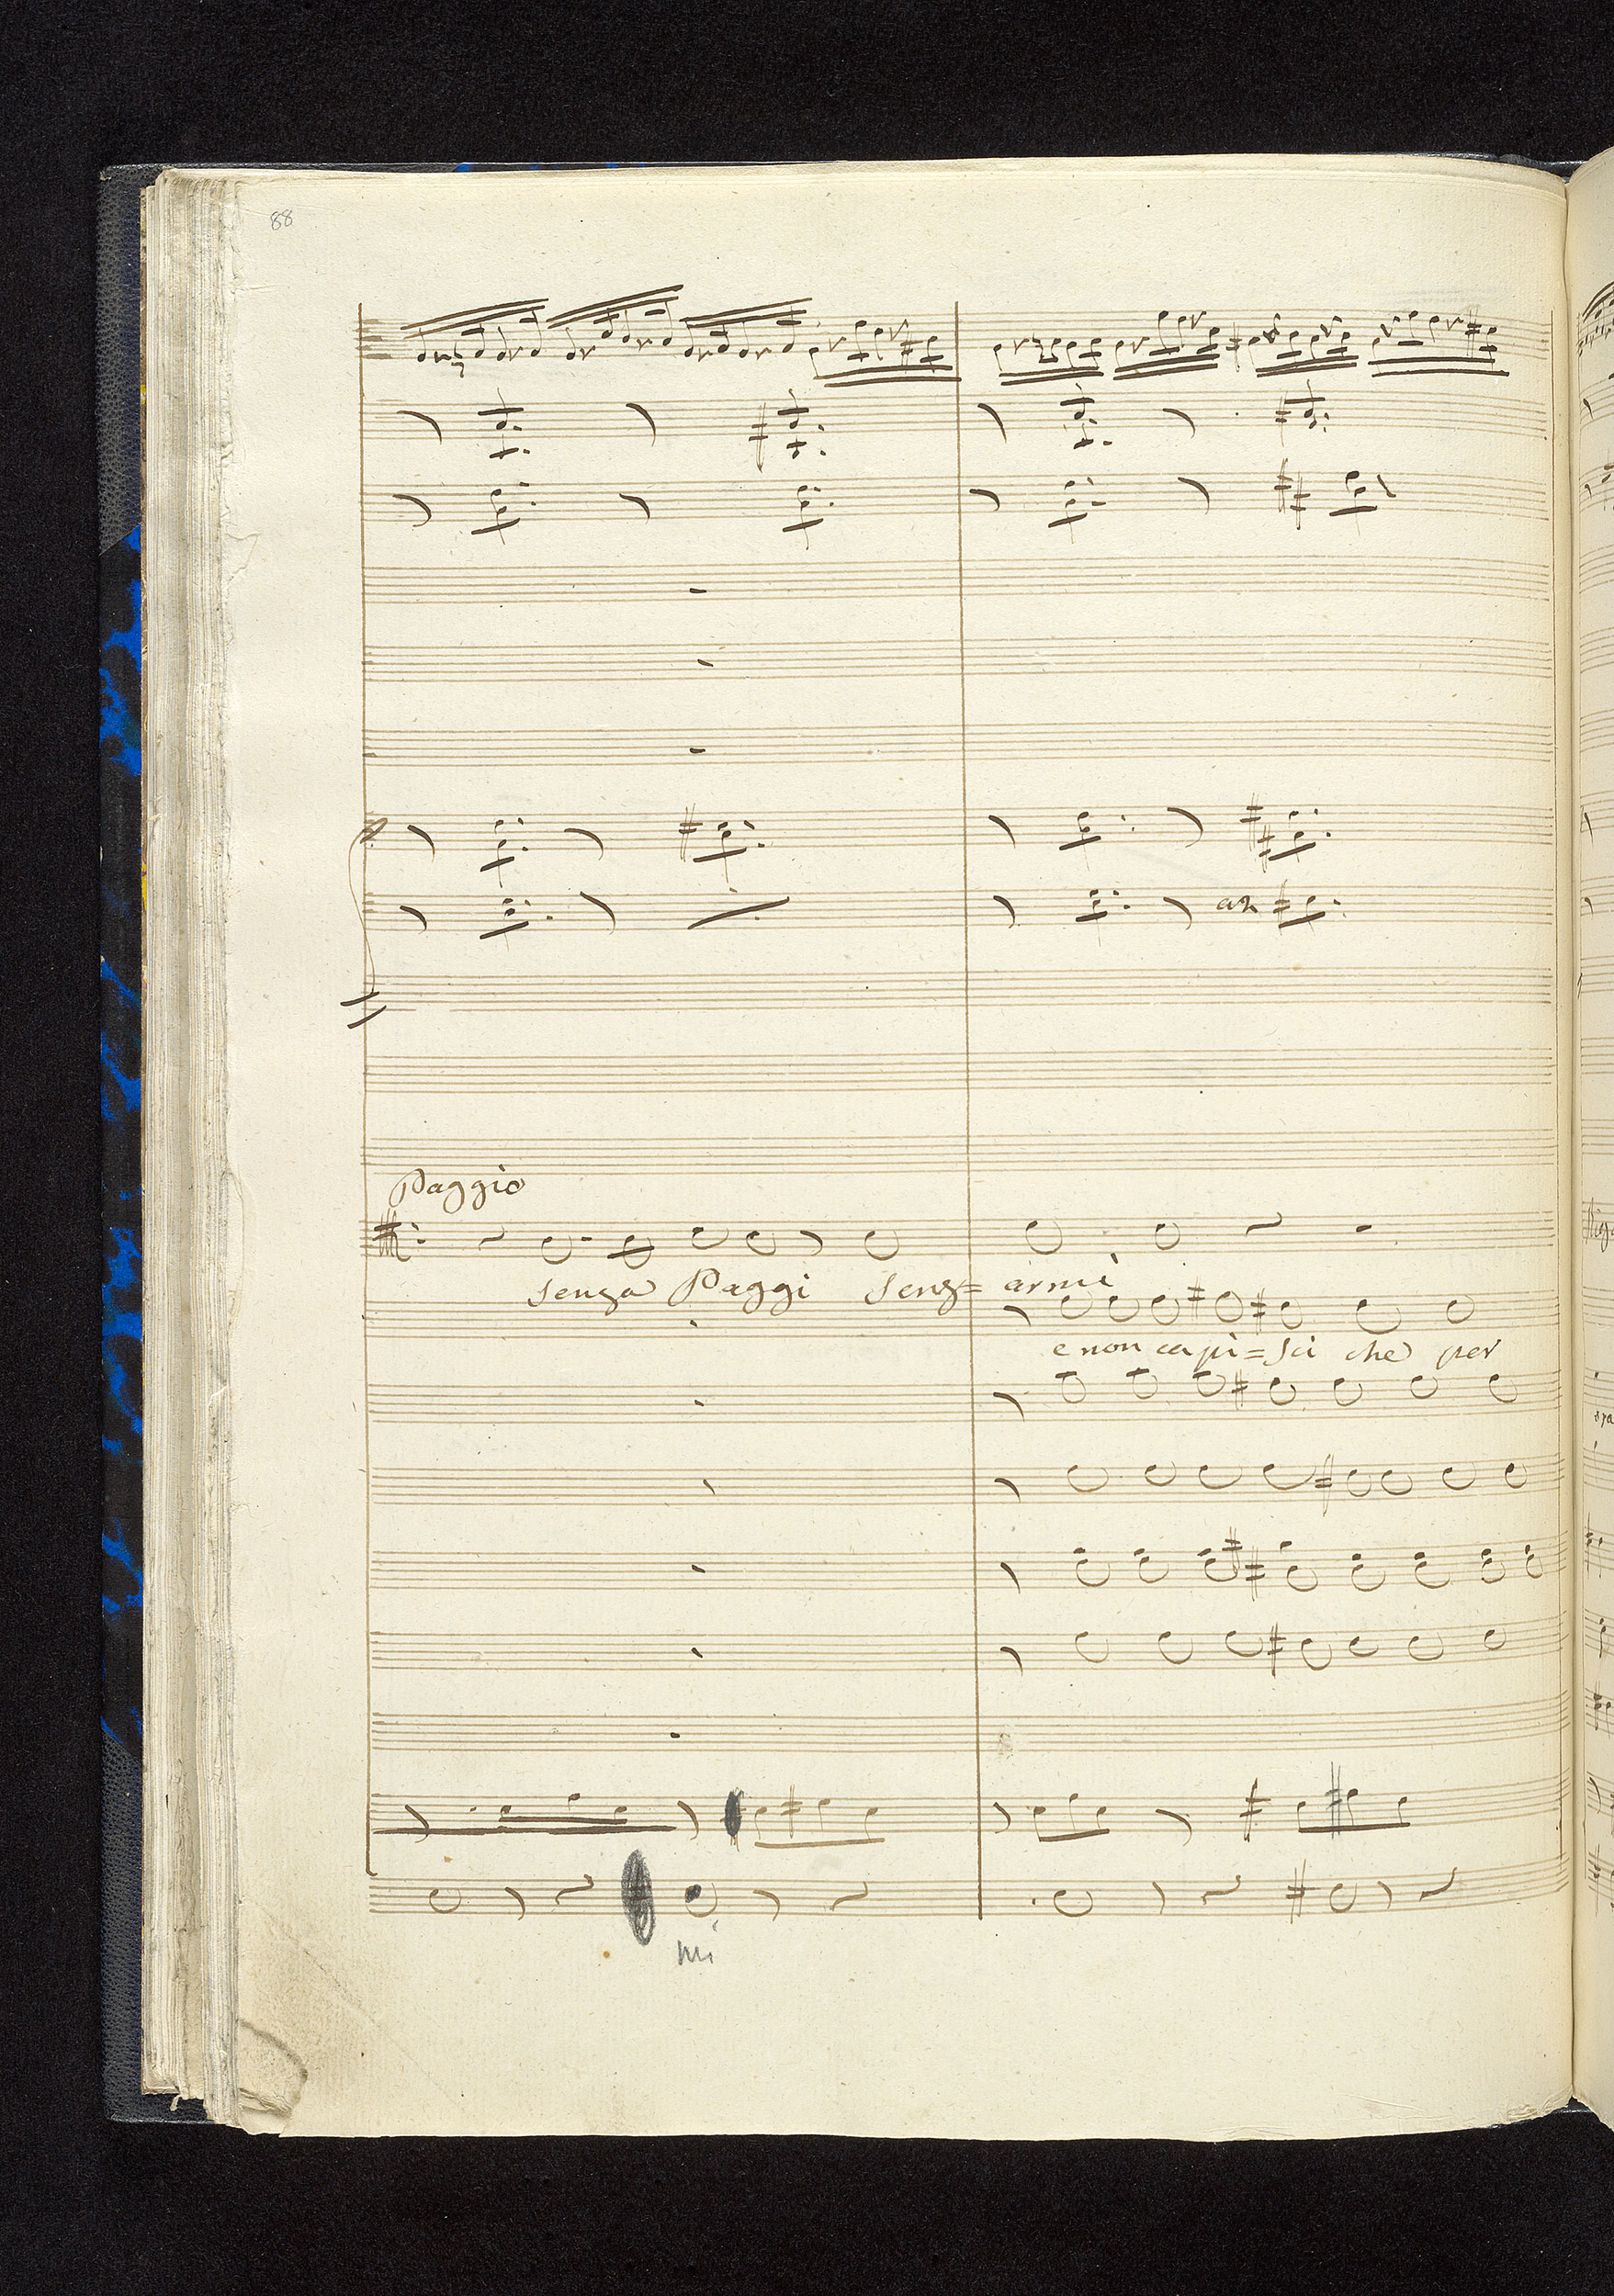 88
Paggio
Senza Paggi Senz= armi
e non capi=sci che per
a2
mi